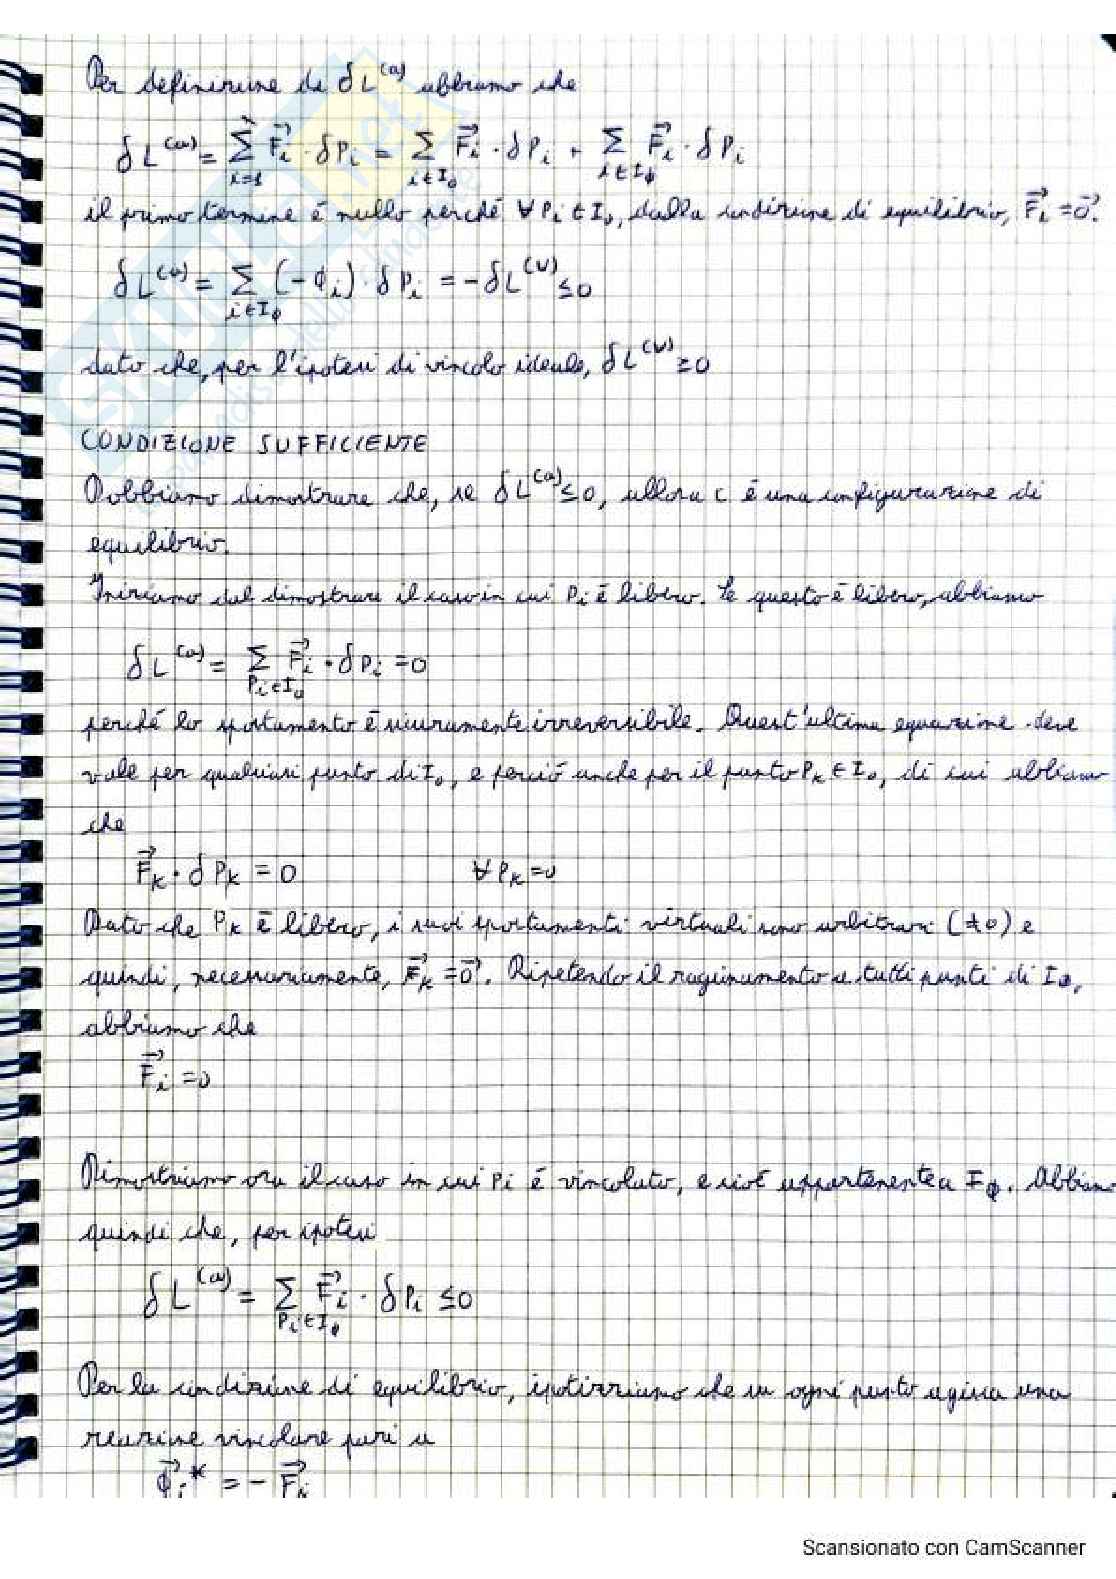 Per definizione di δL^(a) abbiamo che
δL^(a) = Σ_{i=1} F⃗_i · δP_i = Σ_{i∈I_0} F⃗_i · δP_i + Σ_{i∈I_ϕ} F⃗_i · δP_i
il primo termine é nullo perché ∀ P_i ∈ I_0, dalla condizione di equilibrio, F⃗_i = 0⃗.
δL^(a) = Σ_{i∈I_ϕ} (-ϕ_i) · δP_i = -δL^(V) ≤ 0
dato che, per l'ipotesi di vincolo ideale, δL^(V) ≥ 0
CONDIZIONE SUFFICIENTE
Dobbiamo dimostrare che, se δL^(a) ≤ 0, allora C é una configurazione di
equilibrio.
Iniziamo dal dimostrare il caso in cui P_i é libero. Se questo é libero, abbiamo
δL^(a) = Σ_{P_i∈I_0} F⃗_i · δP_i = 0
perché lo spostamento é sicuramente irreversibile. Quest'ultima equazione deve
vale per qualsiasi punto di I_0, e perciò anche per il punto P_k ∈ I_0, di cui abbiamo
che
F⃗_k · δP_k = 0 ∀ P_k = 0
Dato che P_k é libero, i suoi spostamenti virtuali sono arbitrari (≠0) e
quindi, necessariamente, F⃗_k = 0⃗. Ripetendo il ragionamento a tutti punti di I_0,
abbiamo che
F⃗_i = 0
Dimostriamo ora il caso in cui P_i é vincolato, e cioé appartenente a I_ϕ. Abbiamo
quindi che, per ipotesi
δL^(a) = Σ_{P_i∈I_ϕ} F⃗_i · δP_i ≤ 0
Per la condizione di equilibrio, ipotizziamo che su ogni punto agisca una
reazione vincolare pari a
ϕ⃗_i* = - F⃗_i
Scansionato con CamScanner